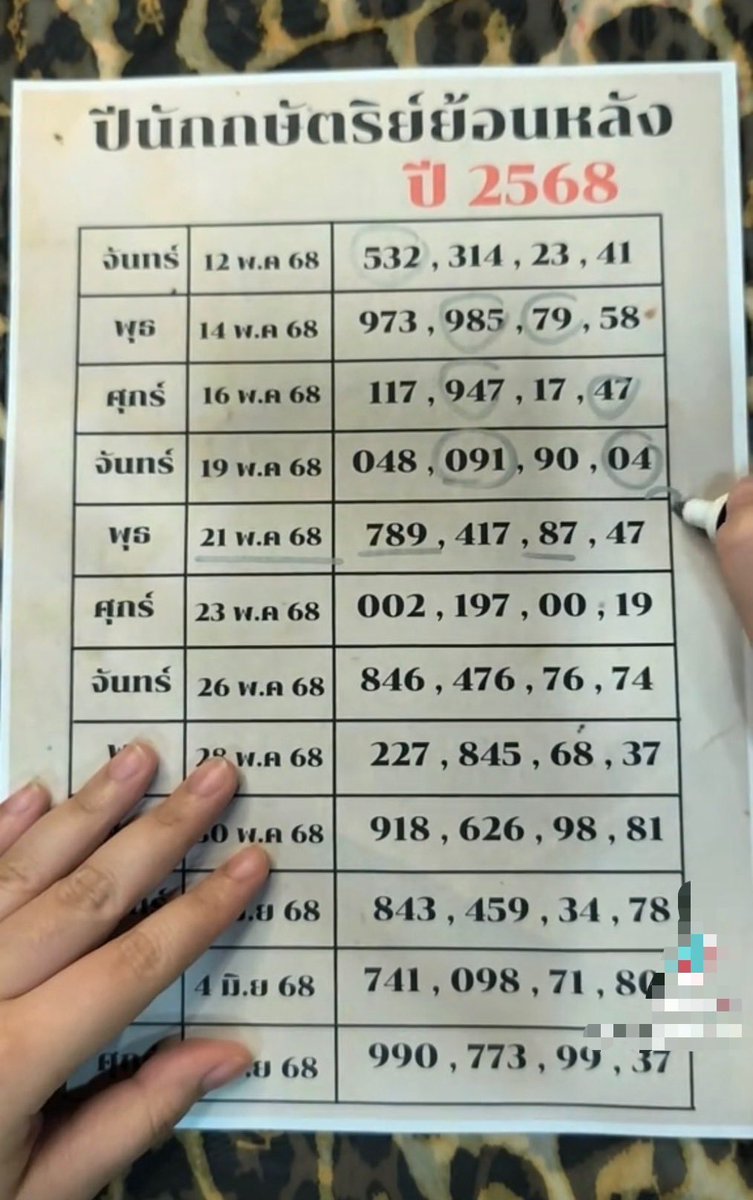 ปีนักกษัตริย์ย้อนหลัง
ปี 2568
จันทร์ 12 พ.ค 68 532 , 314 , 23 , 41
พุธ 14 พ.ค 68 973 , 985 , 79 , 58
ศุกร์ 16 พ.ค 68 117 , 947 , 17 , 47
จันทร์ 19 พ.ค 68 048 , 091 , 90 , 04
พุธ 21 พ.ค 68 789 , 417 , 87 , 47
ศุกร์ 23 พ.ค 68 002 , 197 , 00 , 19
จันทร์ 26 พ.ค 68 846 , 476 , 76 , 74
28 พ.ค 68 227 , 845 , 68 , 37
พ.ค 68 918 , 626 , 98 , 81
68 843 , 459 , 34 , 78
4 มิ.ย 68 741 , 098 , 71 , 80
68 990 , 773 , 99 , 37